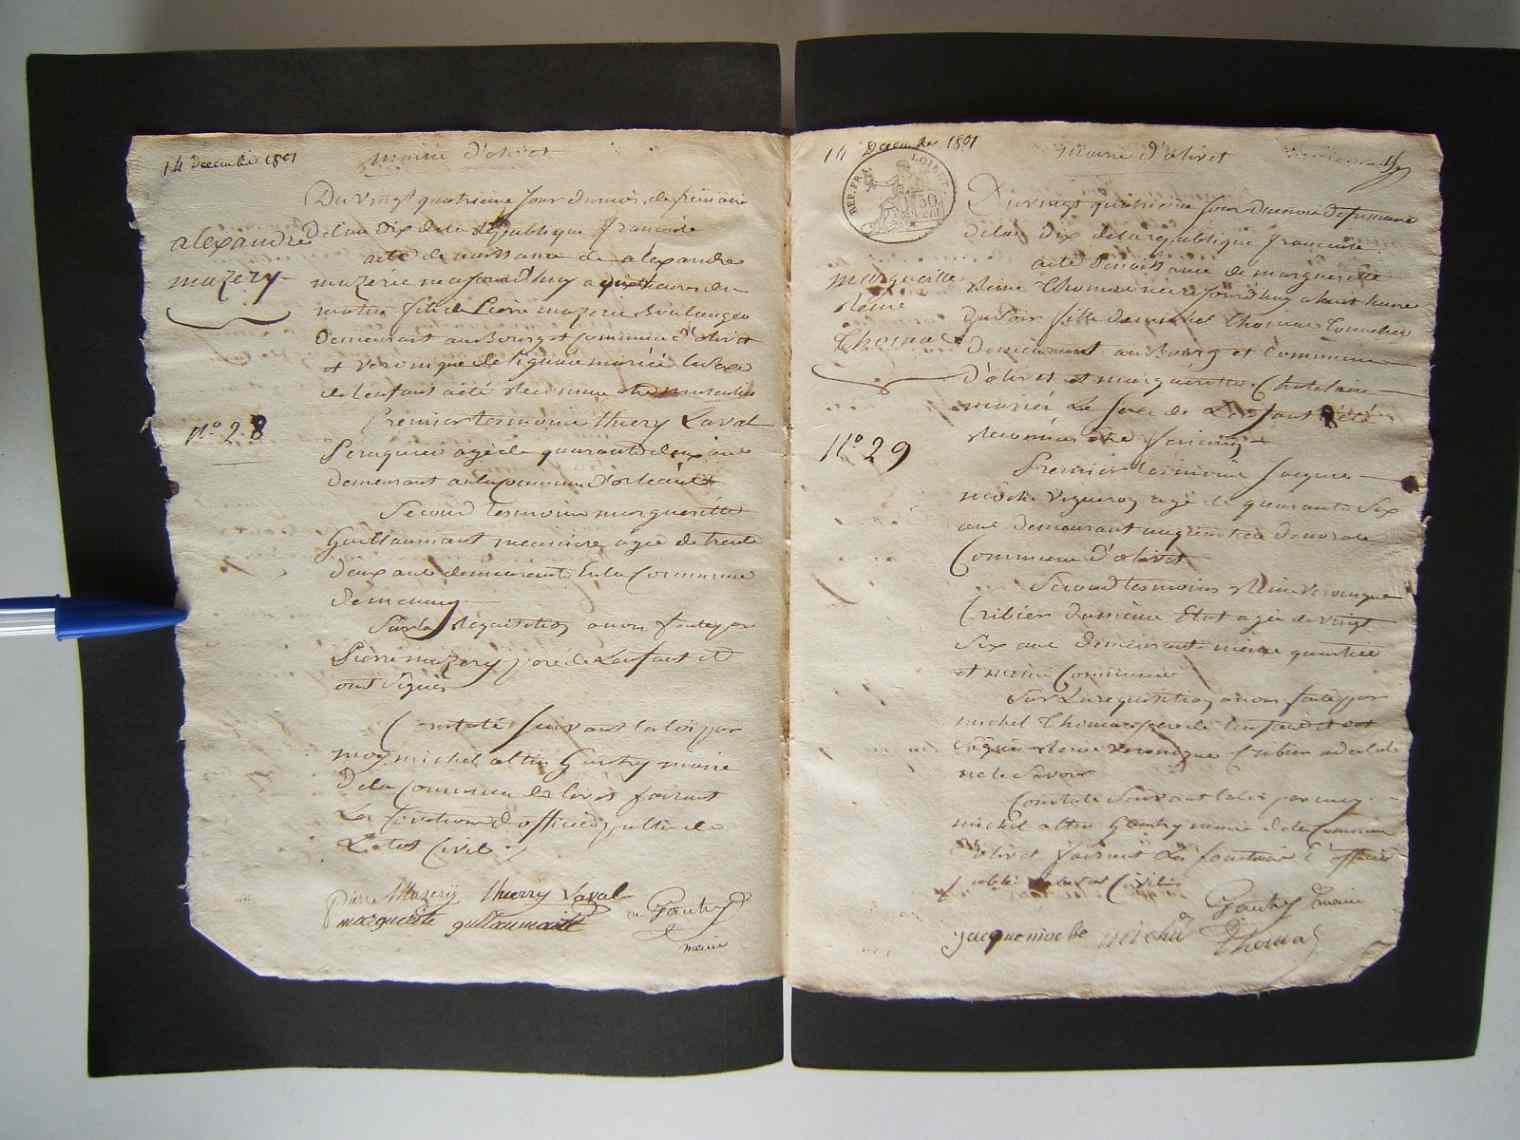 14 Decembre 1801
mairie d'olivet
Du vingt quatrieme jour du mois de frimaire
alexandre
mazery
N° 28
De l'an dix de la Republique francaise
acte de naissance de alexandre
mazerie ne jourd'huy a heures du
matin fils de Pierre mazerie Boulanger
Demeurant au Bourg et commune d'olivet
et veronique mariée le sexe
de l'enfant a été reconnu etre masculin
Premier tesmoin thiery Laval
Peruquier agé de quarante deux ans
demeurant a la commune d'orleans
Second tesmoin margueritte
Guillaumant meuniere agée de trente
deux ans demeurant En la Commune
de
Sur la Requisition a nous faite par
Pierre mazery pere de L'enfant et
ont Signés
Constaté suivant la loi par
moy michel altin Gautry maire
De la Commune d'olivet faisant
Les fonctions d'officier public de
L'etat Civil
Pierre Mazerÿ thierry Laval
marguerite guillaumant Gautry
maire
14 Decembre 1801
mairie d'olivet
REP. FRA. LOIRET
50 cent
Du vingt quatrieme jour du mois de frimaire
De l'an Dix de la republique francaise
marguerite
Reine
Thomas
N° 29
acte de naissance de marguerite
Reine Thomas née ce jourd'huy a huit heure
Du soir fille de michel thomas Tonnelier
Demeurant au Bourg et Commune
D'olivet et marguerite Chatelain
mariée Le sexe de L'enfant a été
Reconnu etre feminin
Premier tesmoin Jacques
nioche vigneron agé de quarante Six
ans demeurant
Commune D'olivet
Second tesmoin Reine veronique
Cribier du même Etat agée de vingt
Six ans demeurant même quartier
et même Commune
Sur La requisition a nous faite par
michel Thomas pere de l'enfant et ont
signés Reine veronique Cribier a declaré
ne le Savoir
Constaté Suivant la loi par moy
michel altin Gautry maire de la Commune
D'olivet faisant Les fonctions D'officier
public de l'etat Civil
Gautry maire
jacque nioche michel Thomas